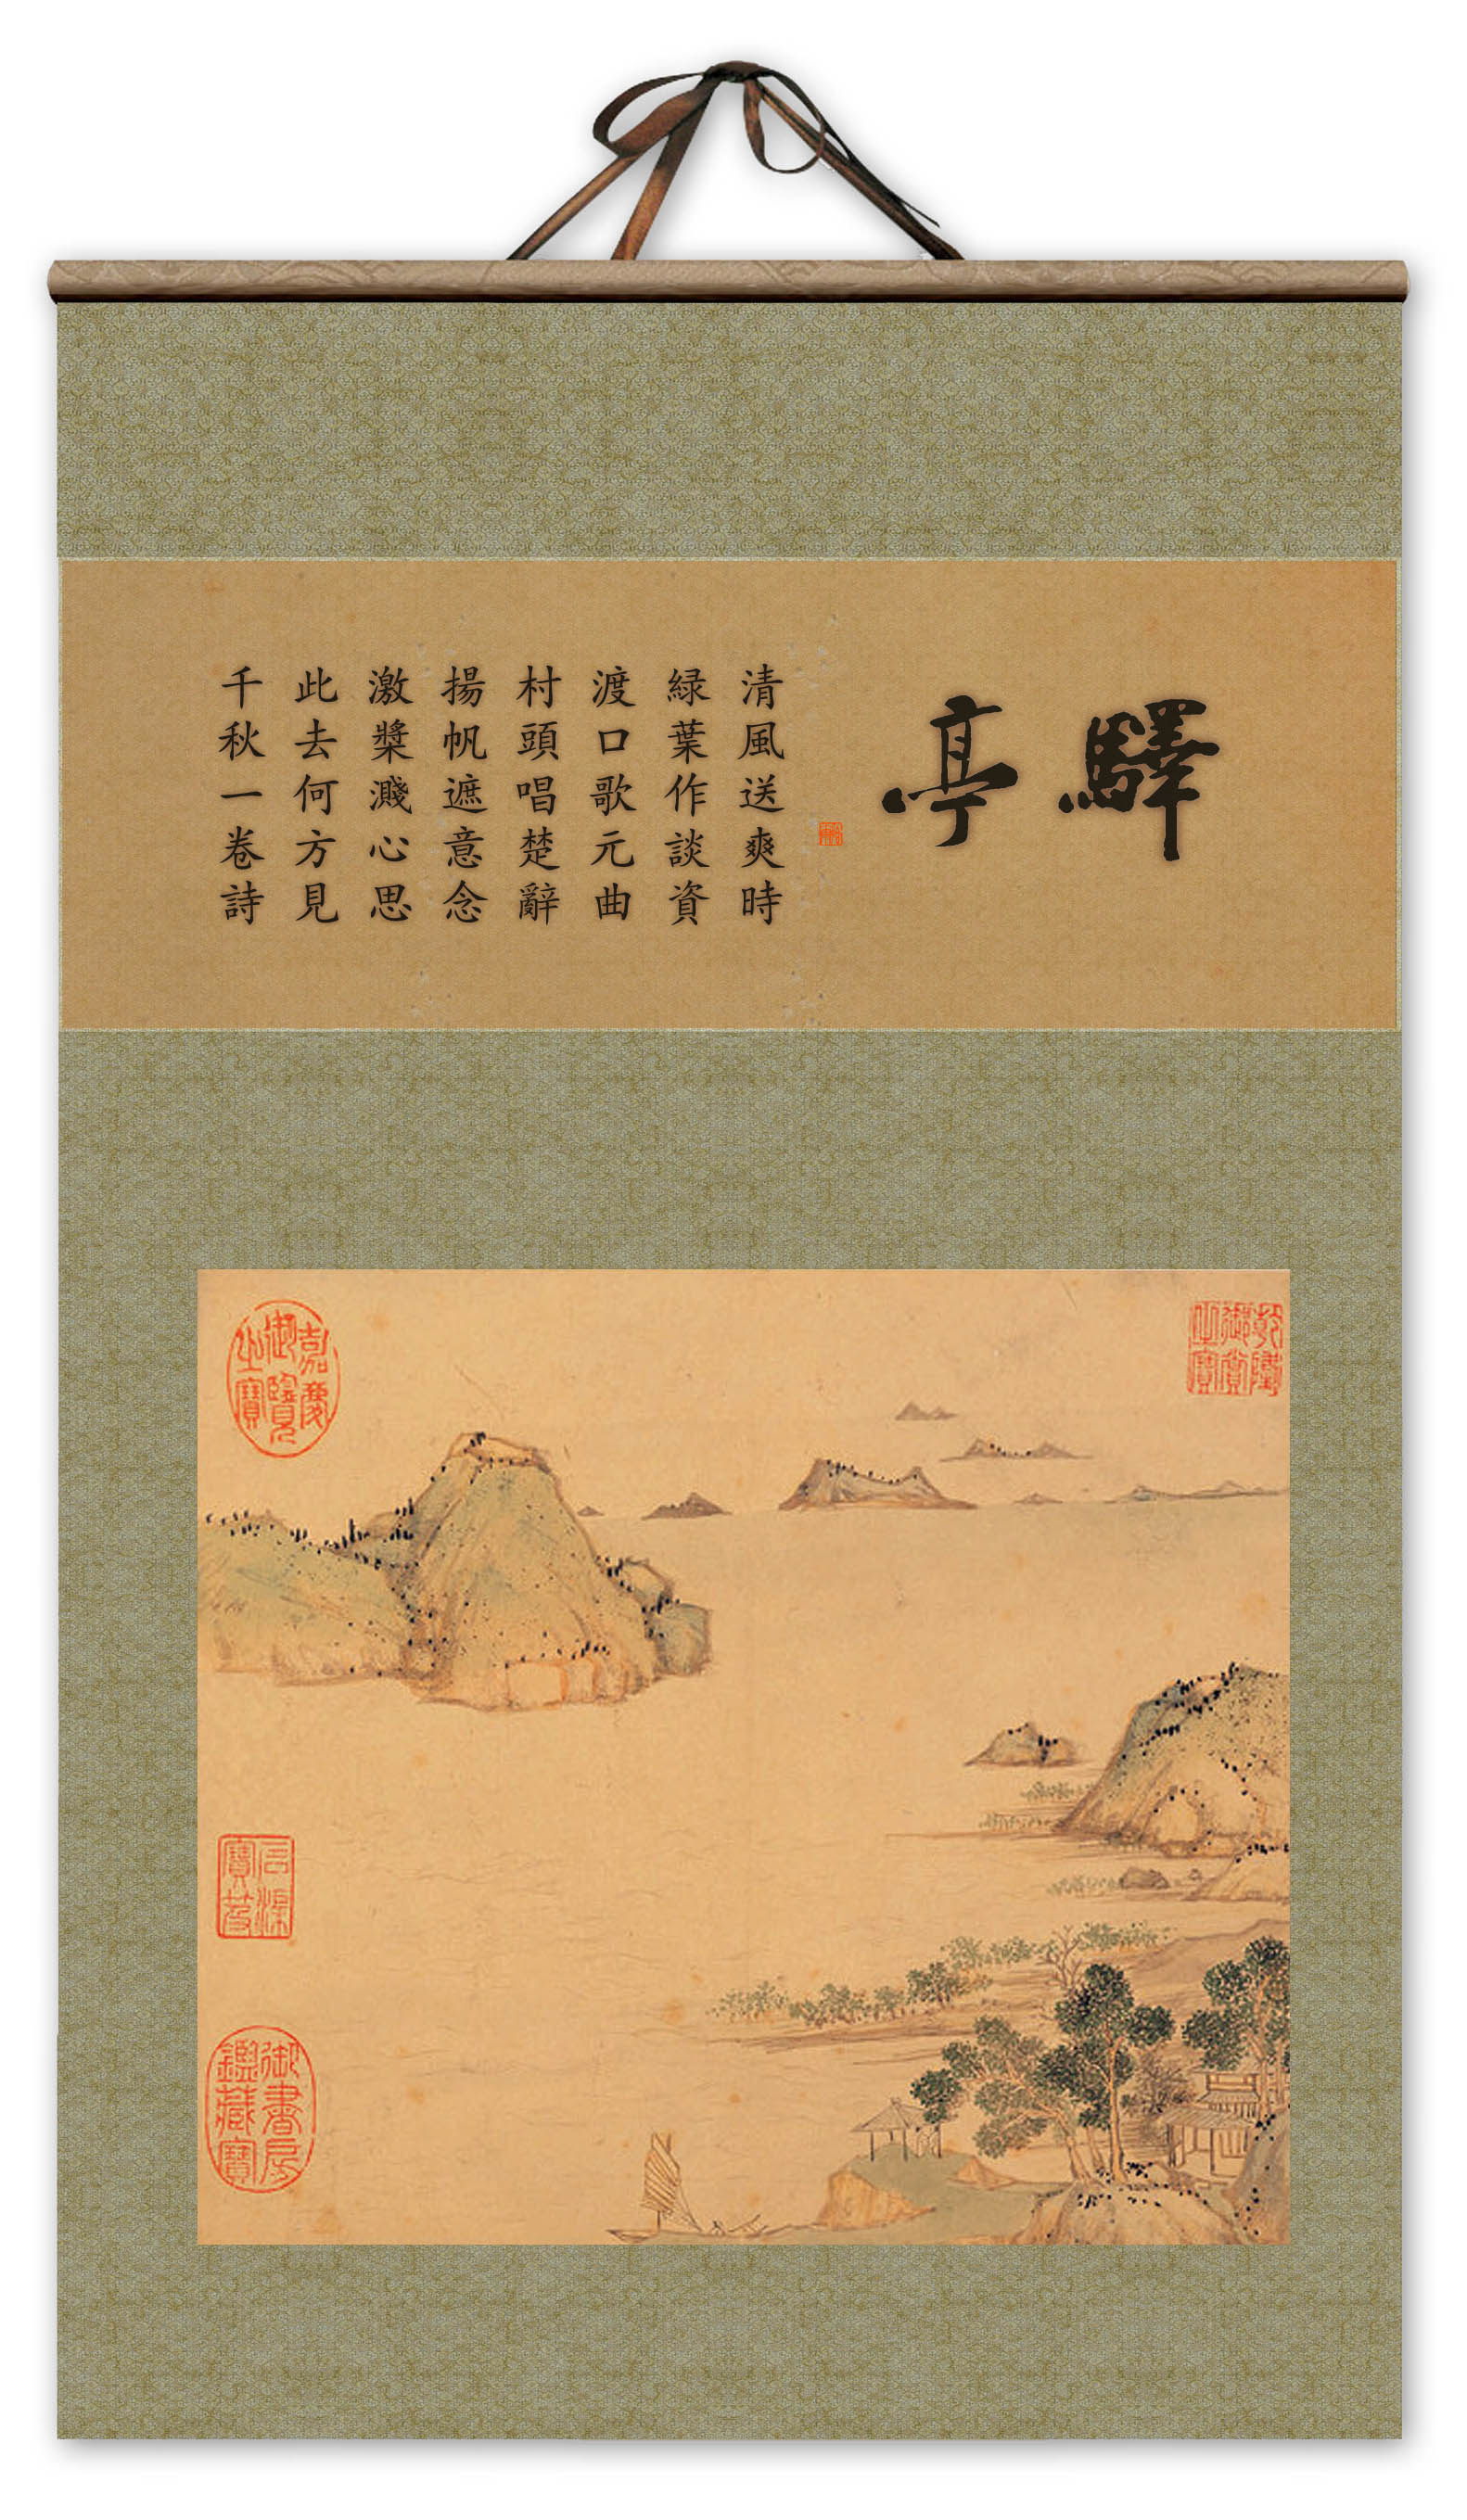 驛亭
清風送爽時
緑葉作談資
渡口歌元曲
村頭唱楚辭
揚帆遮意念
激槳濺心思
此去何方見
千秋一卷詩
乾隆御賞之寶
嘉慶御覽之寶
石渠寶笈
御書房鑑藏寶